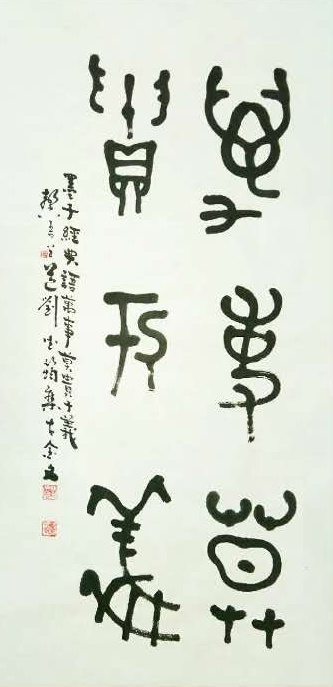 萬事莫
貴于義
墨子經典語萬事莫貴于義
劉 古金文